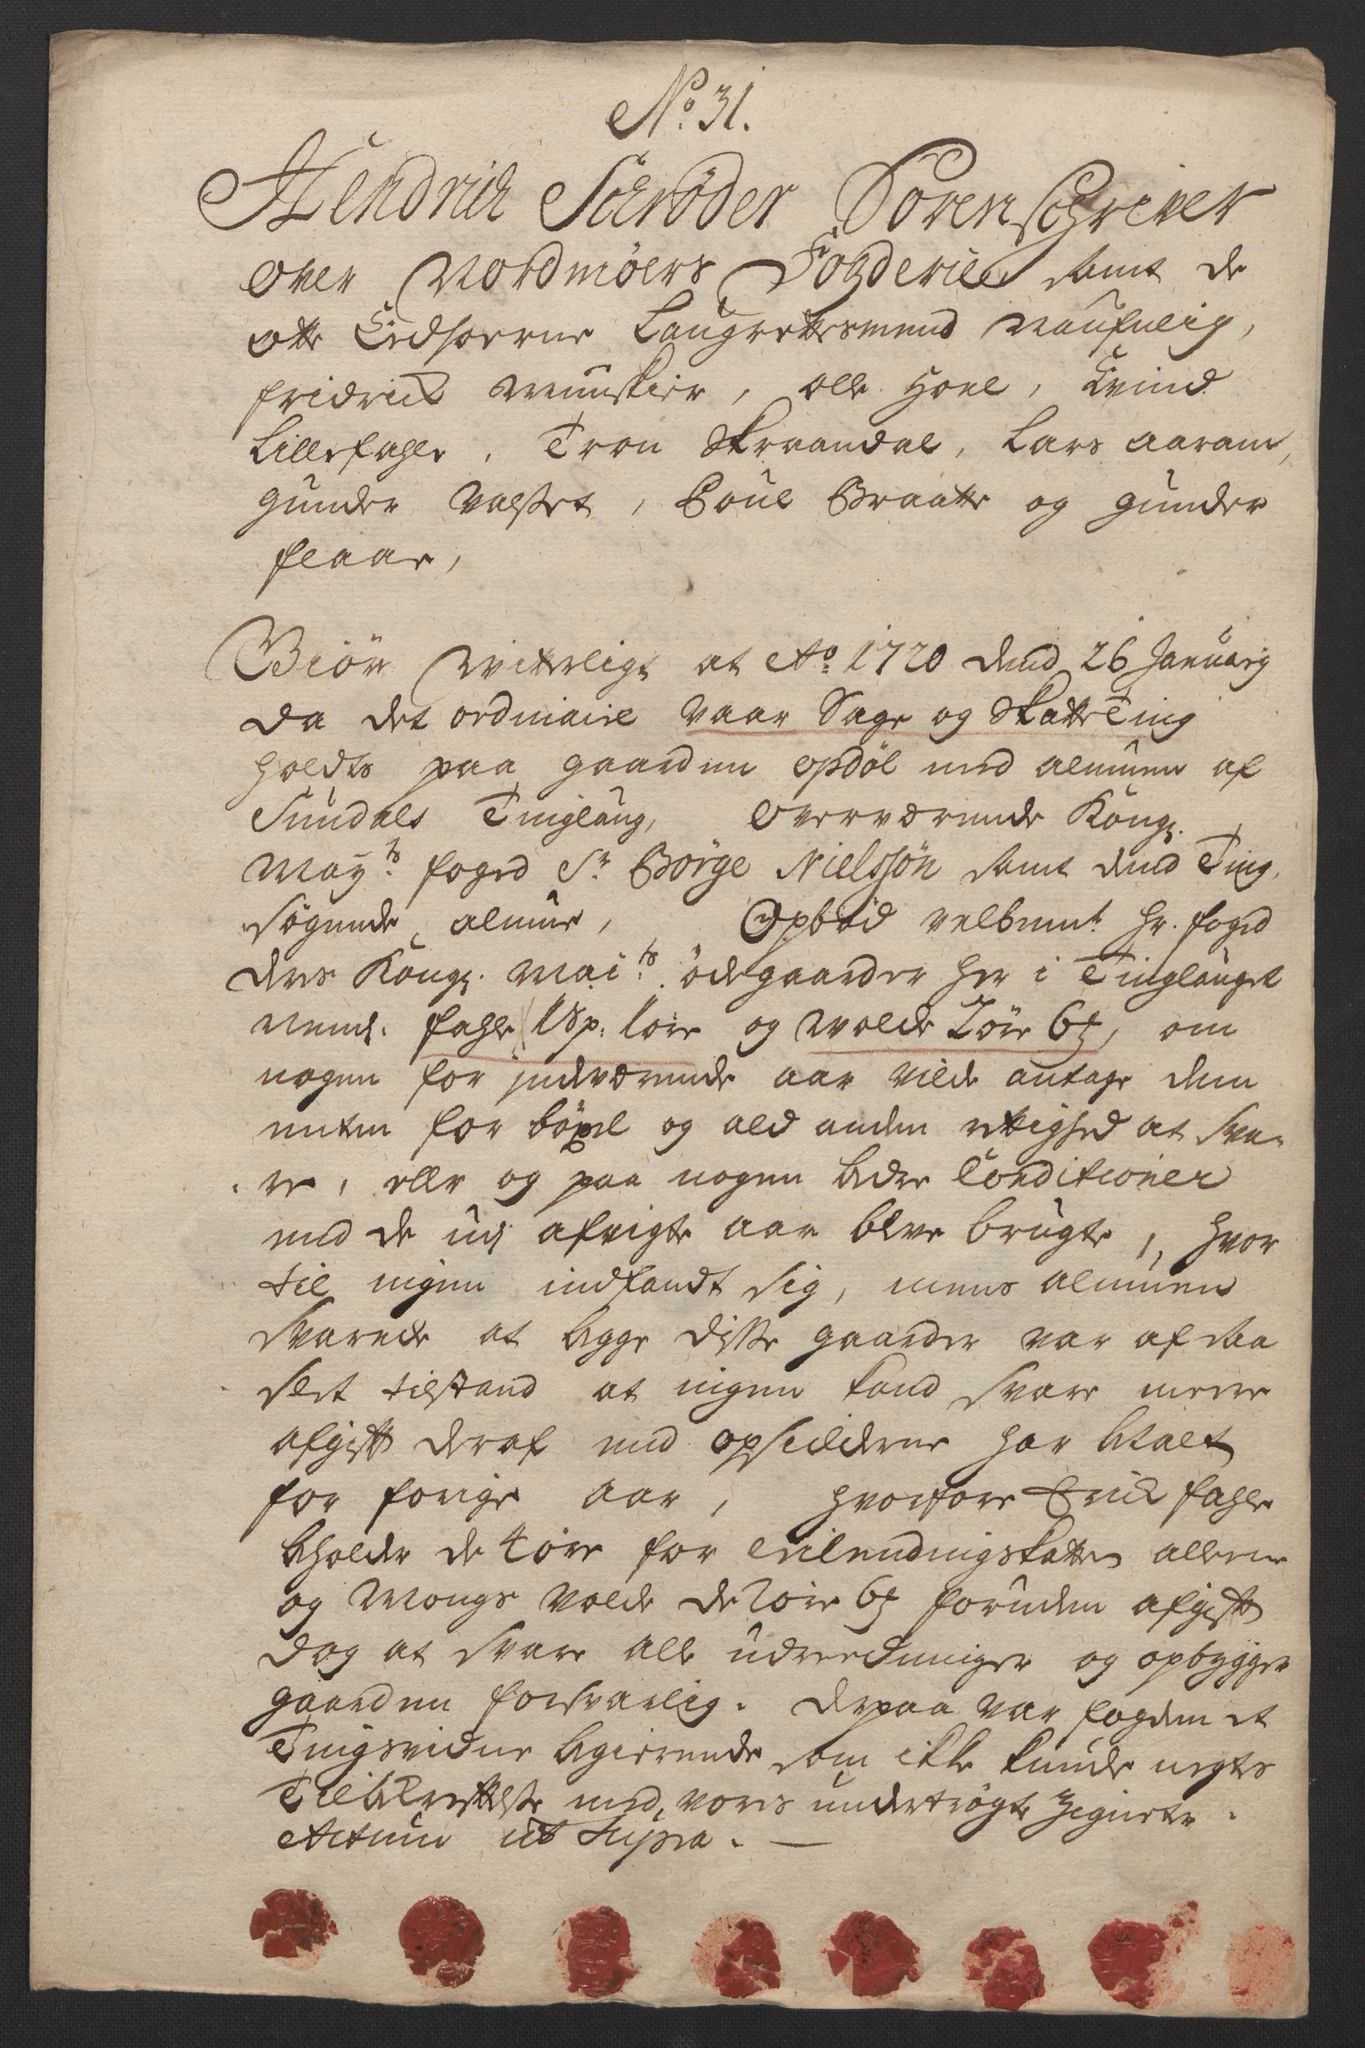 No: 31.
Hendrich Schrøder Sorenschriver
over Nordmøers Fogderie samt de
otte Eedsorne Laugrettesmend Naufnlig,
fridrich Munskier, olle Hoel, Evind
Lillefahle, Tron Skraandal, Lars Aaram,
gunder Valset, Poul Braatte og gunder
flaae,
Giør Witterligt at Ao: 1720 dend 26 Januarij
da det ordinaire Vaar Sage og Skatte Ting
holdts paa gaarden opdøl med almuen af
Sundals Tinglaug, Overværende Kong:
May:ts foged Sr. Børge Nielssøn samt dend Ting
søgende almue, Opbød velbemt. Hr. foged
deris Kong: Mai:ts ødegaarder her i Tinglauget
nemb: fahle 1 Sp: 1 øre og Wolde 2 ører 6 , om
nogen for indværende aar vilde antage dem
enten for bøxel og ald anden rettighed at sva-
re, eller og paa nogen bedre Conditioner
end de udj afvigte aar bleve brugte, hvor
til ingen indfandt sig, mens almuen
svarede at begge disse gaarder var af saa
slet tilstand at ingen kand svare meere
afgift deraf end opsidderne har betalt
for forige aar, hvorfore Erick fahle
beholder de 4 øre for leilendingskatten allene
og Mongs Volde de 2 øre 6 foruden afgift
dog at svare alle udreedninger og opbygge
gaarden forsvarlig. Derpaa var fogden et
Tingsvidne begierende som ikke kunde negtes
Til bekreftelse med vores undertrøgte Zigneter.
Actum ut Supra. —